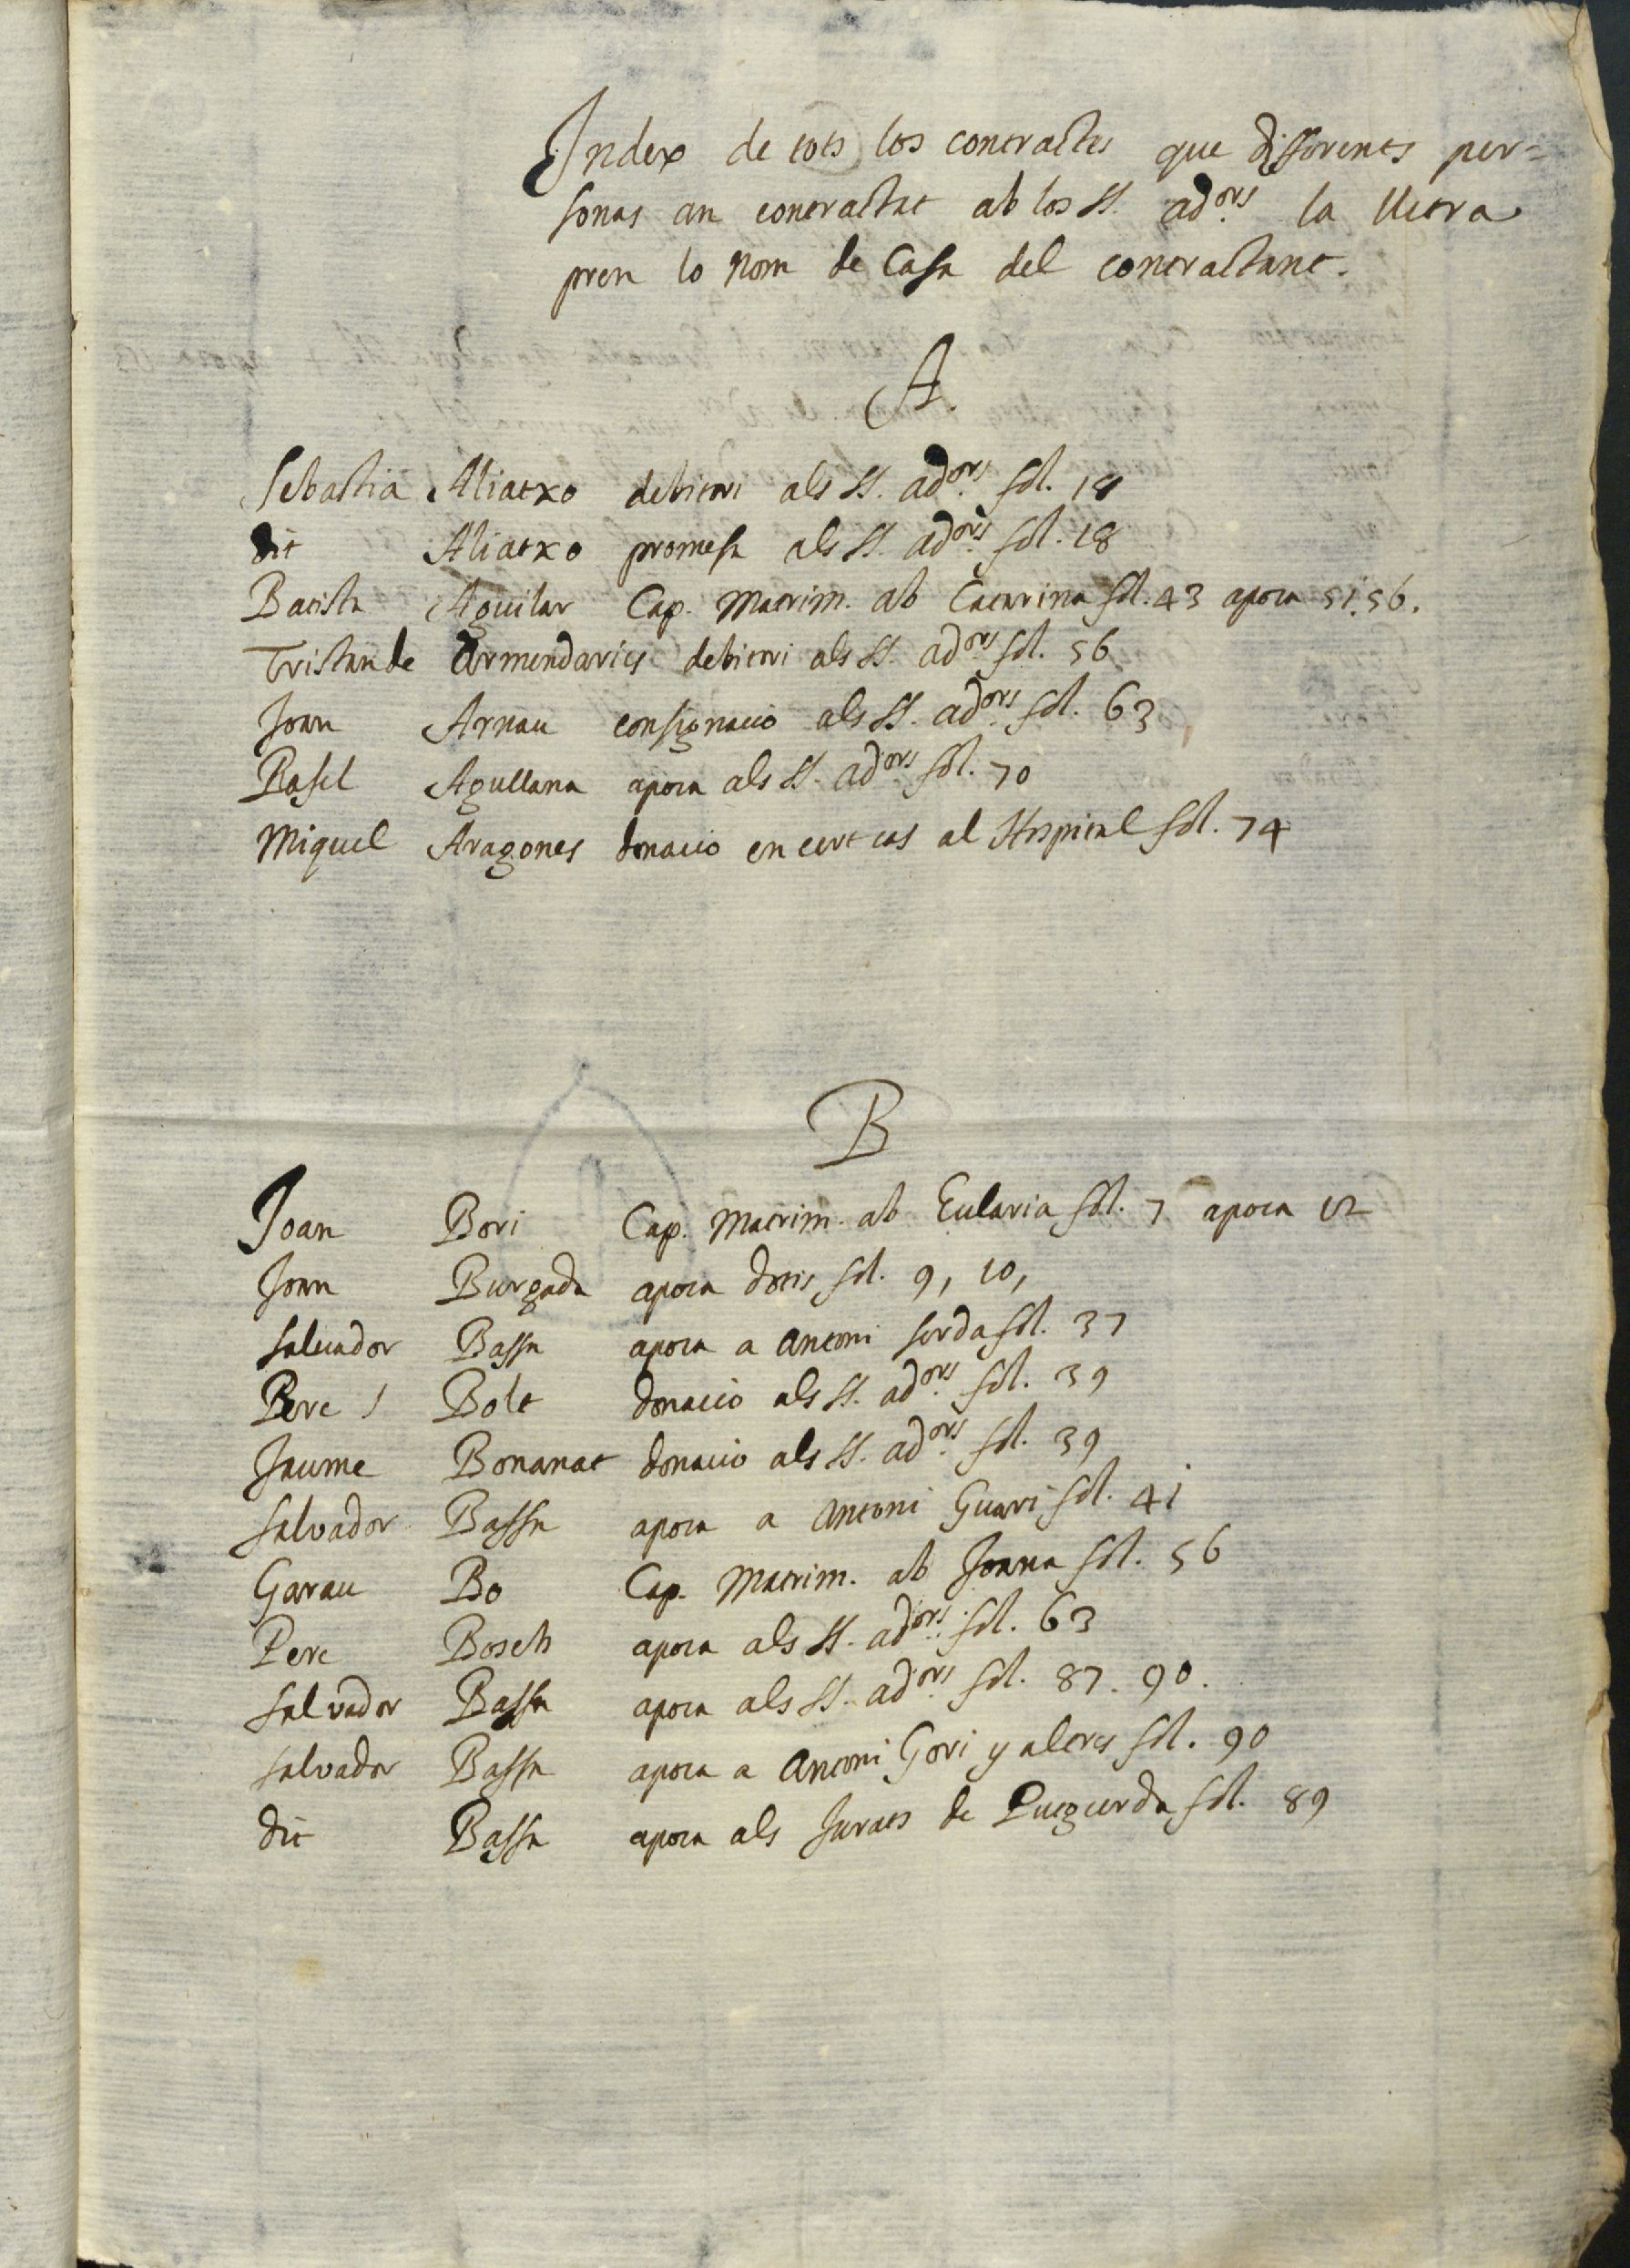 Index de tots los contractes que differents per=
sonas an contractat ab los SS. ad.ors la lletra
pren lo nom de Casa del contractant.
A.
Sebastia Aliatxo debitori als SS. ad.ors fol. 18
dit Aliatxo promesa als SS. ad.ors fol. 18
Batista Aguilar Cap. Matrim. ab Catarina fol. 43 apoca 51. 56.
Tristan de Armendaries debitori als SS. ad.ors fol. 56
Joan Arnau consignacio als SS. ad.ors fol. 63
Rafel Agullana apoca als SS. ad.ors fol. 70
Miquel Aragones donacio en cert cas al Hospital fol. 74
B
Joan Bori Cap. Matrim. ab Eularia fol. 7 apoca 12
Joan Burgada apoca dotis fol. 9, 10,
Saluador Bassa apoca a Antoni Serda fol. 37
Pere Bolt donacio als SS. ad.ors fol. 39
Jaume Bonanat donacio als SS. ad.ors fol. 39
Salvador Bassa apoca a Antoni Guari fol. 41
Garau Bo Cap. Matrim. ab Joana fol. 56
Pere Bosch apoca als SS. ad.ors fol. 63
Salvador Bassa apoca als SS. ad.ors fol. 87. 90.
Salvador Bassa apoca a Antoni Gori y altres fol. 90
dit Bassa apoca als Jurats de Puigcerda fol. 89